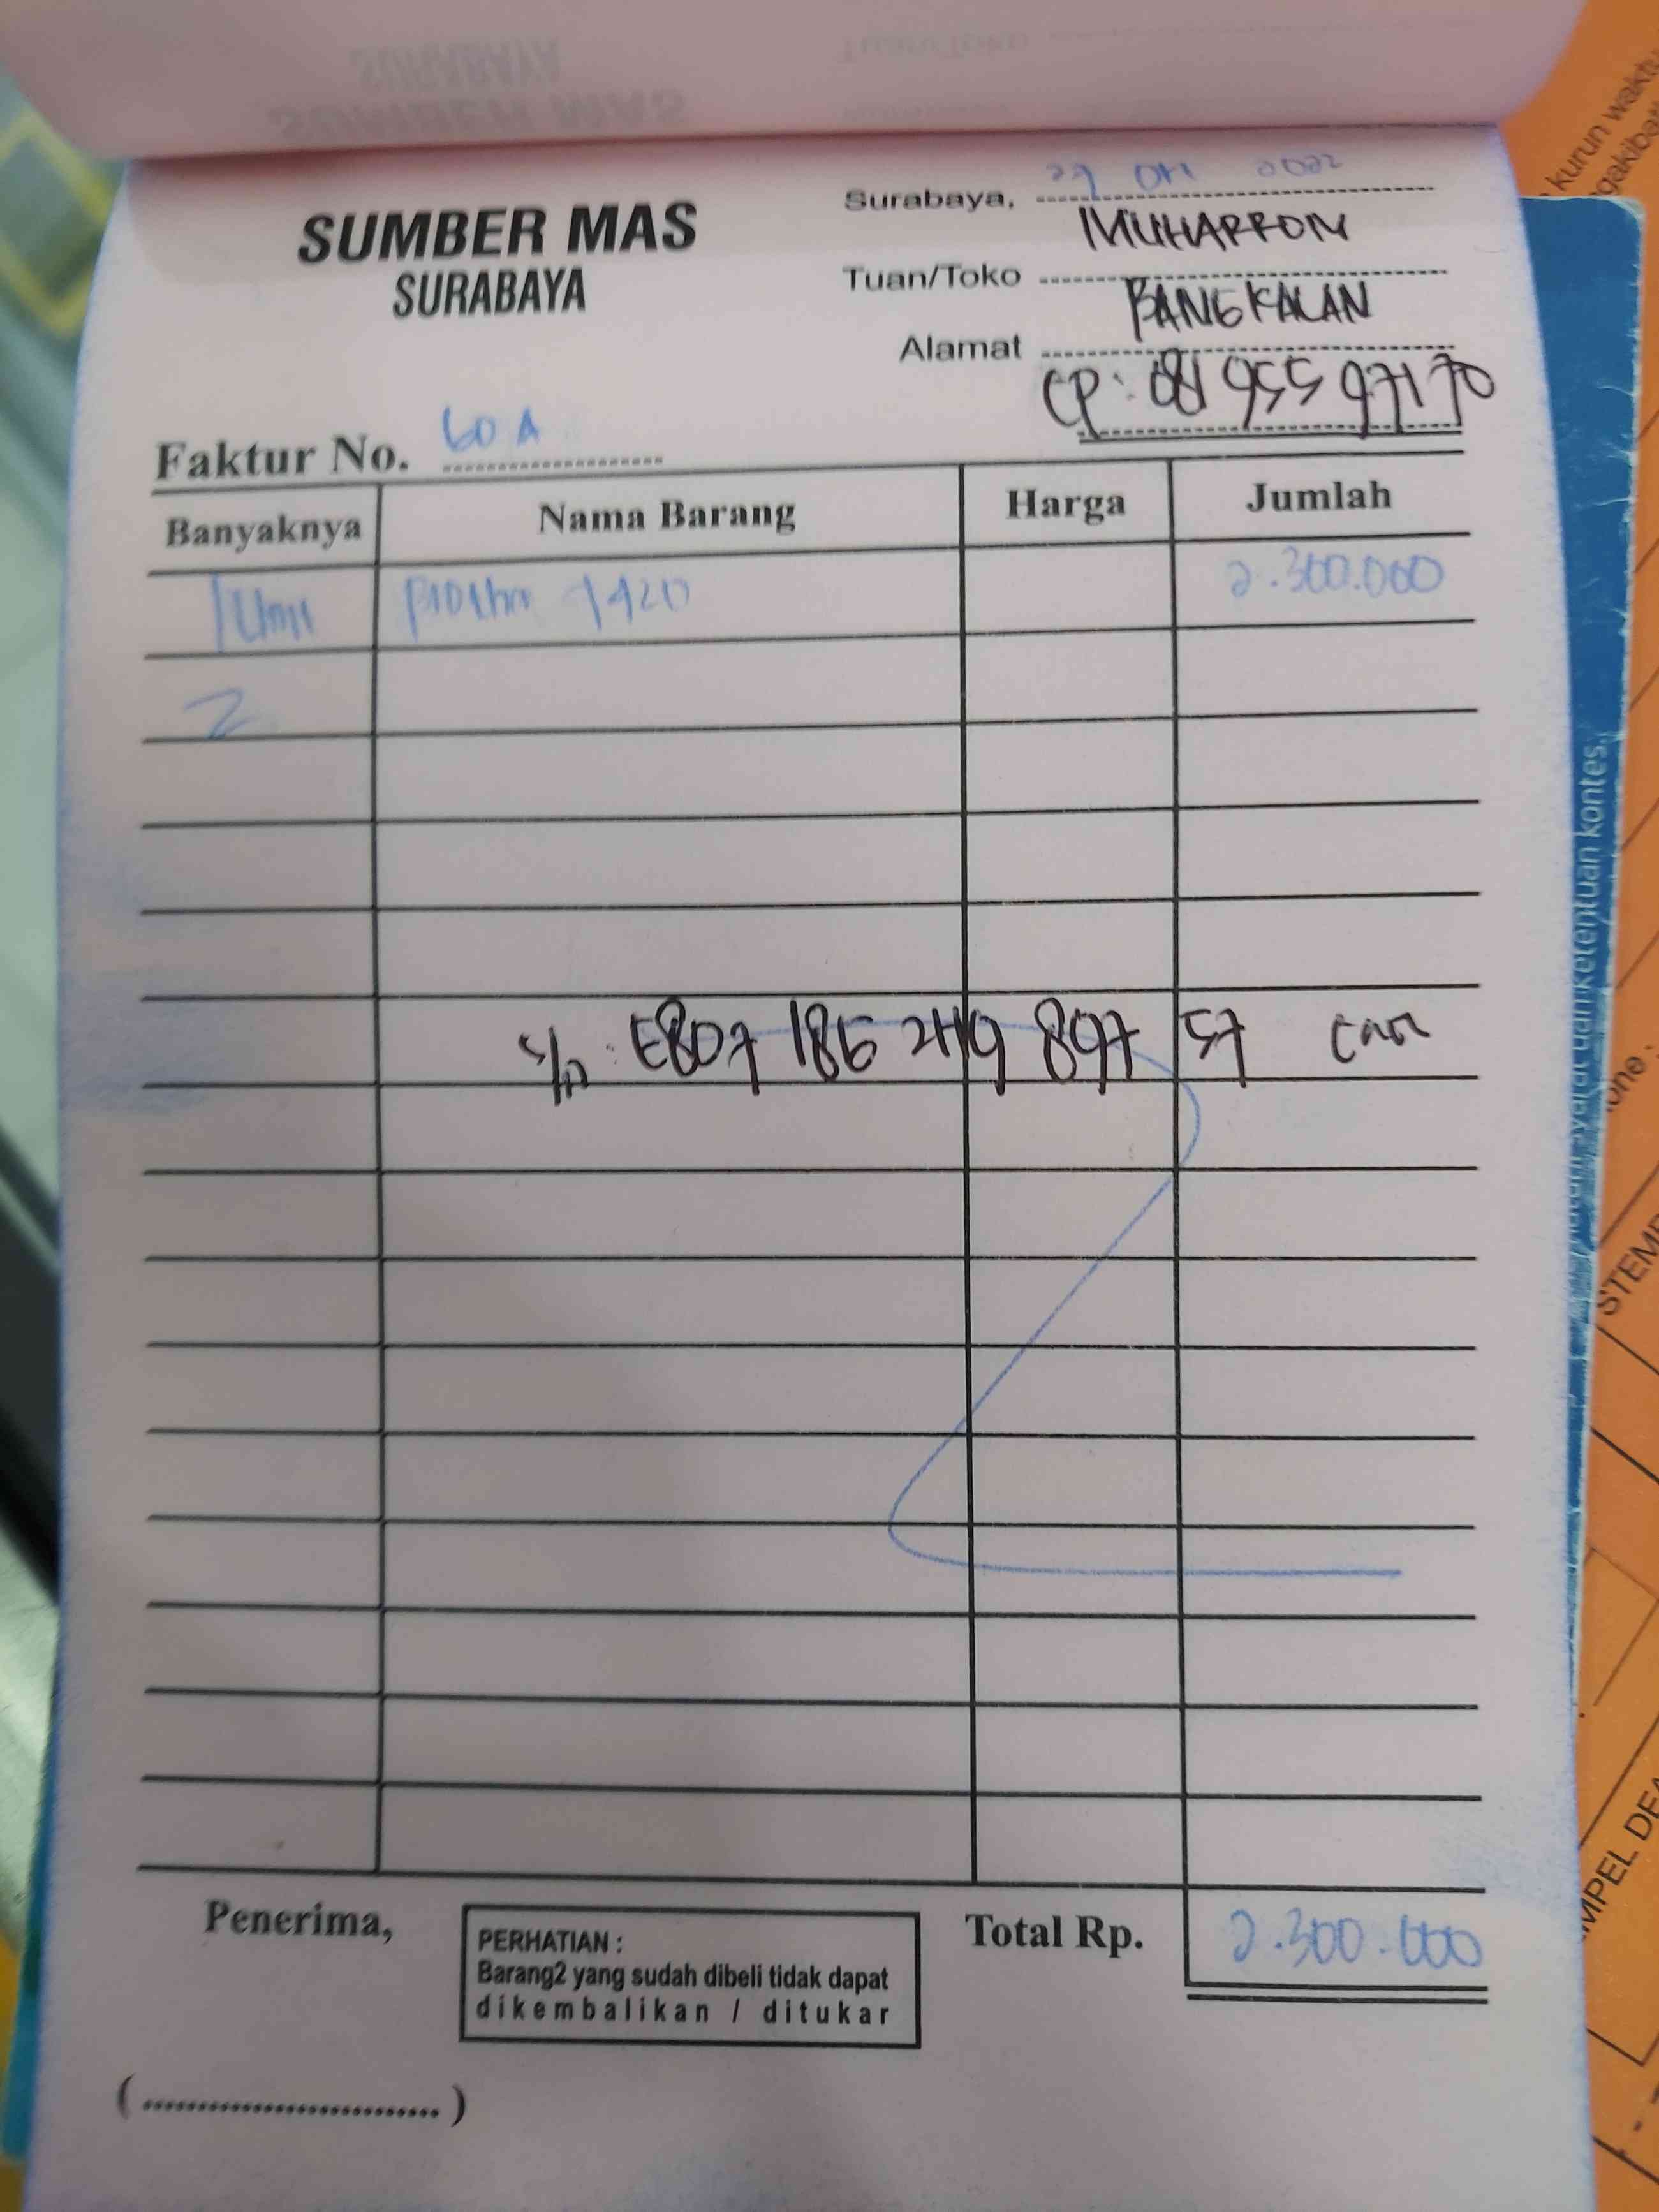 SUMBER MAS
SURABAYA
Surabaya, 29 Okt 2022
Tuan/Toko MUHARROM
Alamat BANGKALAN
CP: 081 955 697170
Faktur No. 60 A
Banyaknya Nama Barang Harga Jumlah
1 Unit 1420 2.300.000
2
S/N: E807 186 2419 897 57
Penerima,
PERHATIAN :
Barang2 yang sudah dibeli tidak dapat
dikembalikan / ditukar
Total Rp. 2.300.000
(..............................)
kurun waktu
syarat dan ketentuan kontes.
STEMP
MPEL DEA